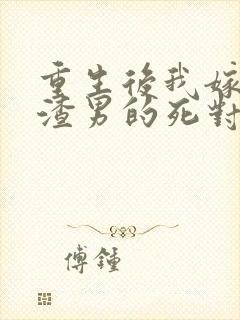 重生後我嫁
渣男的死對
傅鍾